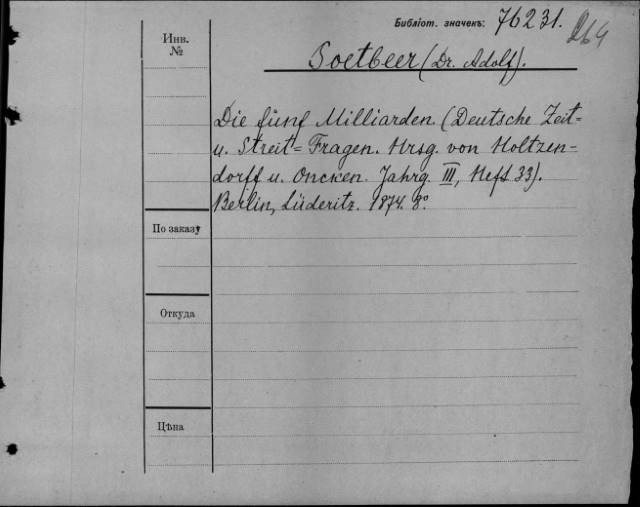 Библіот. значекъ: 76231.
264
Инв.
№
Soetbeer (Dr. Adolf).
Die fünf Milliarden. (Deutsche Zeit=
u. Streit=Fragen. Hrsg. von Holtzen-
dorff u. Oncken. Jahrg. III, Heft 33).
Berlin, Lüderitz. 1874. 8°.
По заказу
Откуда
Цѣна